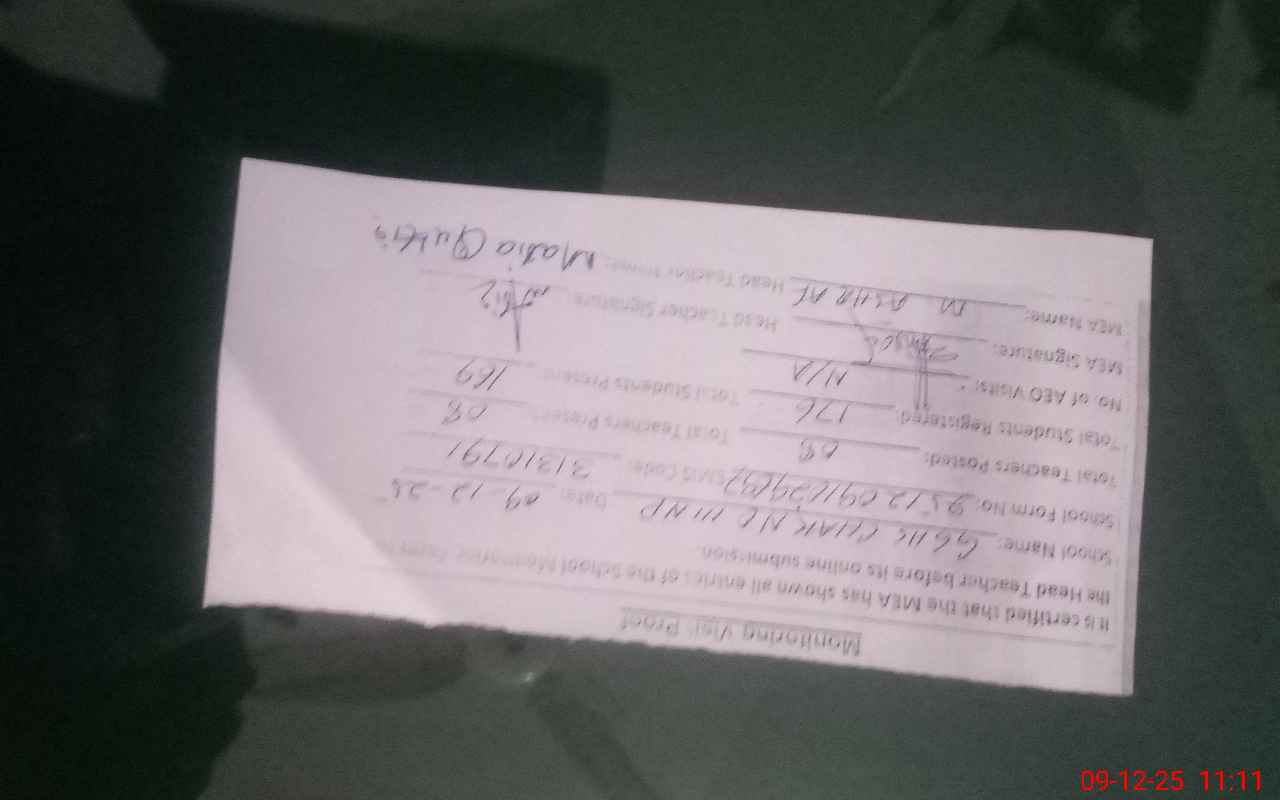 Monitoring Visit Proof
It is certified that the MEA has shown all entries of the School Monitoring Form to
the Head Teacher before its online submission.
School Name: GGHS CHAK NO 111NP Date: 09-12-25
School Form No: EMIS Code: 31310791
Total Teachers Posted: 08 Total Teachers Present: 08
Total Students Registered: 176 Total Students Present: 169
No. of AEO Visits: N/A
MEA Signature: Head Teacher Signature:
MEA Name: M ASHRAF Head Teacher Name:
09-12-25 11:11